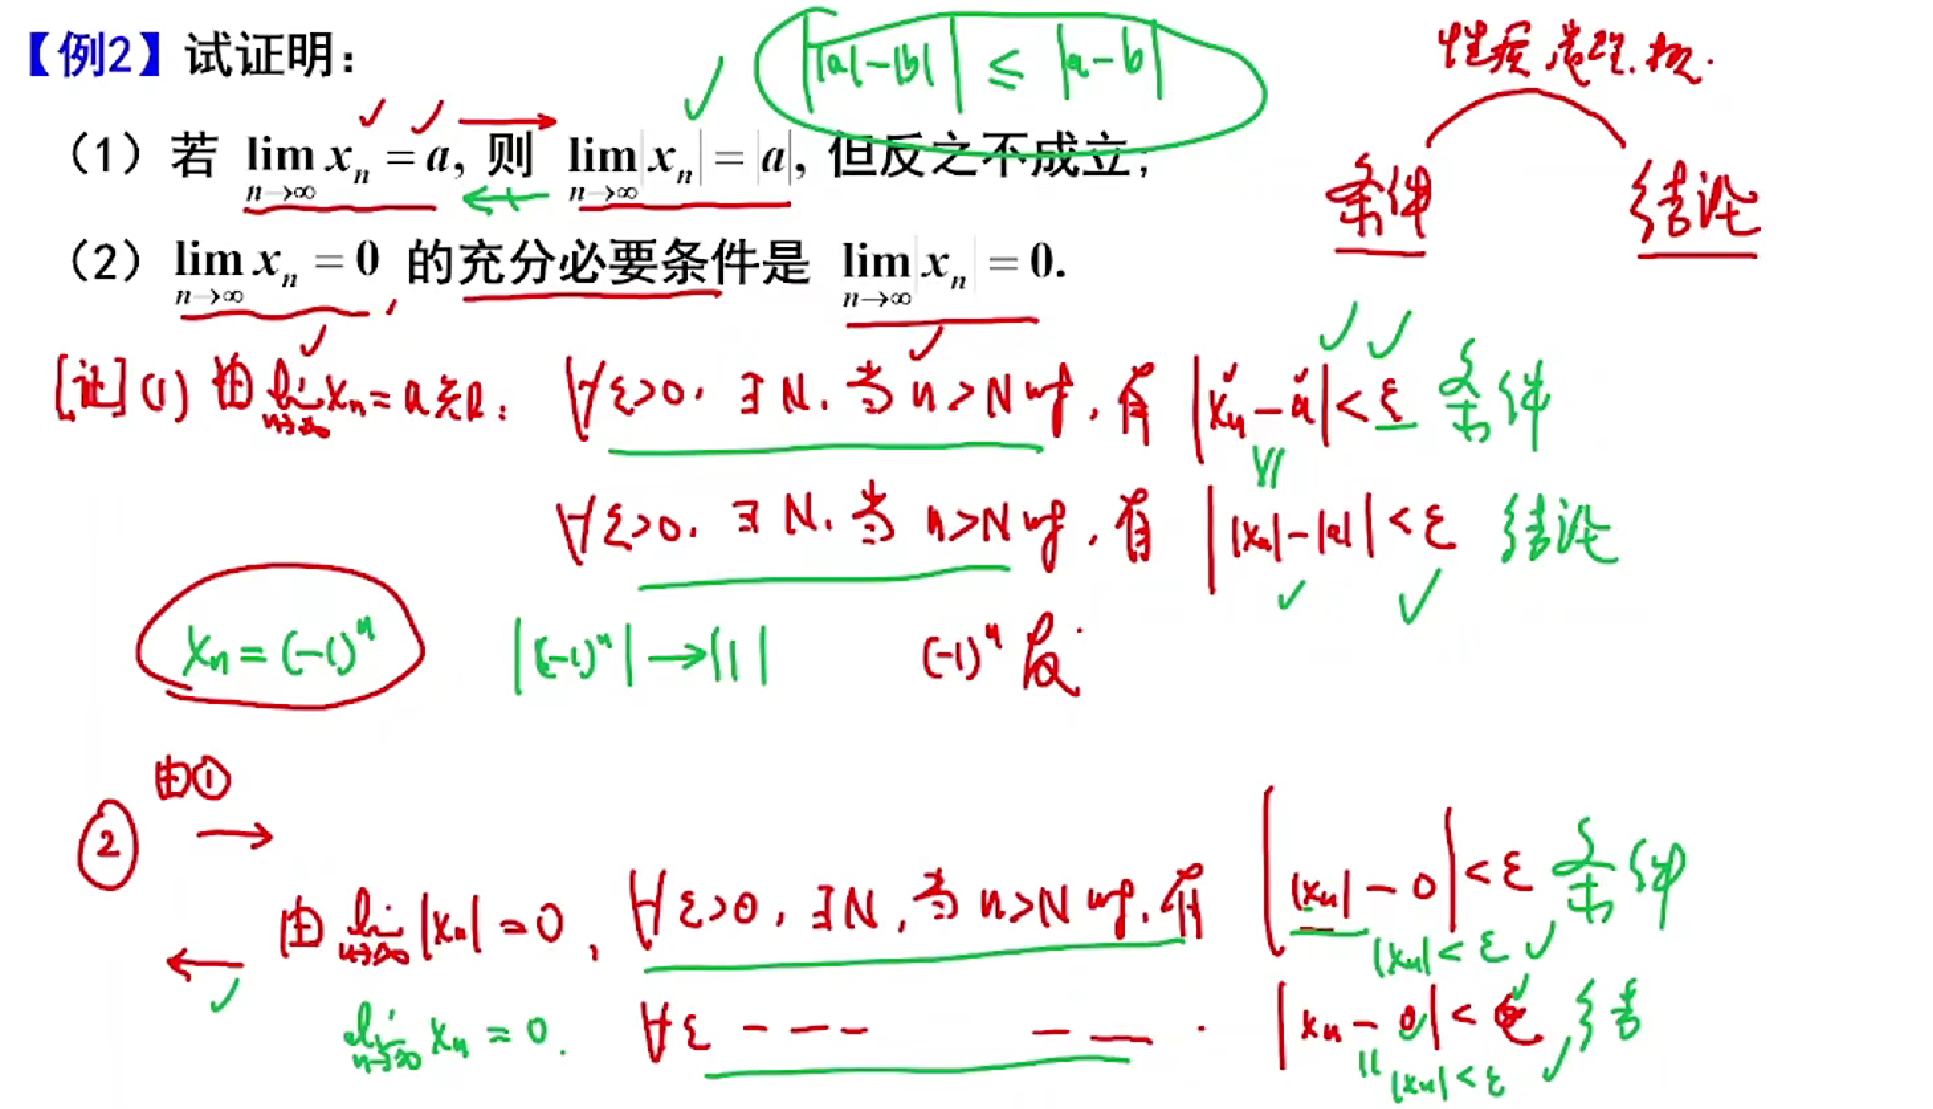 【例2】试证明：
||a|-|b|| ≤ |a-b|
（1）若 lim_{n→∞} x_n = a, 则 lim_{n→∞} |x_n| = |a|, 但反之不成立;
条件 结论
（2） lim_{n→∞} x_n = 0 的充分必要条件是 lim_{n→∞} |x_n| = 0.
[证] (1) 由 lim_{n→∞} x_n = a : ∀ε>0, ∃N, 当 n>N 时, 有 |x_n - a| < ε 条件
∀ε>0, ∃N, 当 n>N 时, 有 ||x_n| - |a|| < ε 结论
x_n = (-1)^n |(-1)^n| → |1| (-1)^n
由①
② →
由 lim_{n→∞} |x_n| = 0, ∀ε>0, ∃N, 当 n>N 时, 有 ||x_n| - 0| < ε 条件
← |x_n| < ε
lim_{n→∞} x_n = 0. ∀ε --- -- . |x_n - 0| < ε 结
|x_n| < ε